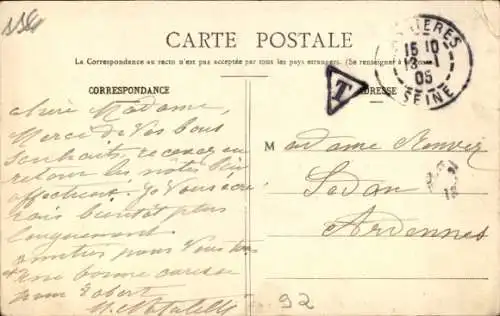 CARTE POSTALE
La Correspondance au recto n'est pas acceptée par tous les pays étrangers. (Se renseigner à la Poste)
CORRESPONDANCE
ADRESSE
NIERES
15 10
13 - 1
05
SEINE
T
chère Madame,
Merci de vos bons
souhaits, recevez en
retour les nôtres bien
affectueux. Je vous écri
rais bientôt plus
longuement
amitiés pour vous
une bonne caresse
pour Robert
M
Madame
Sedan
Ardennes
92